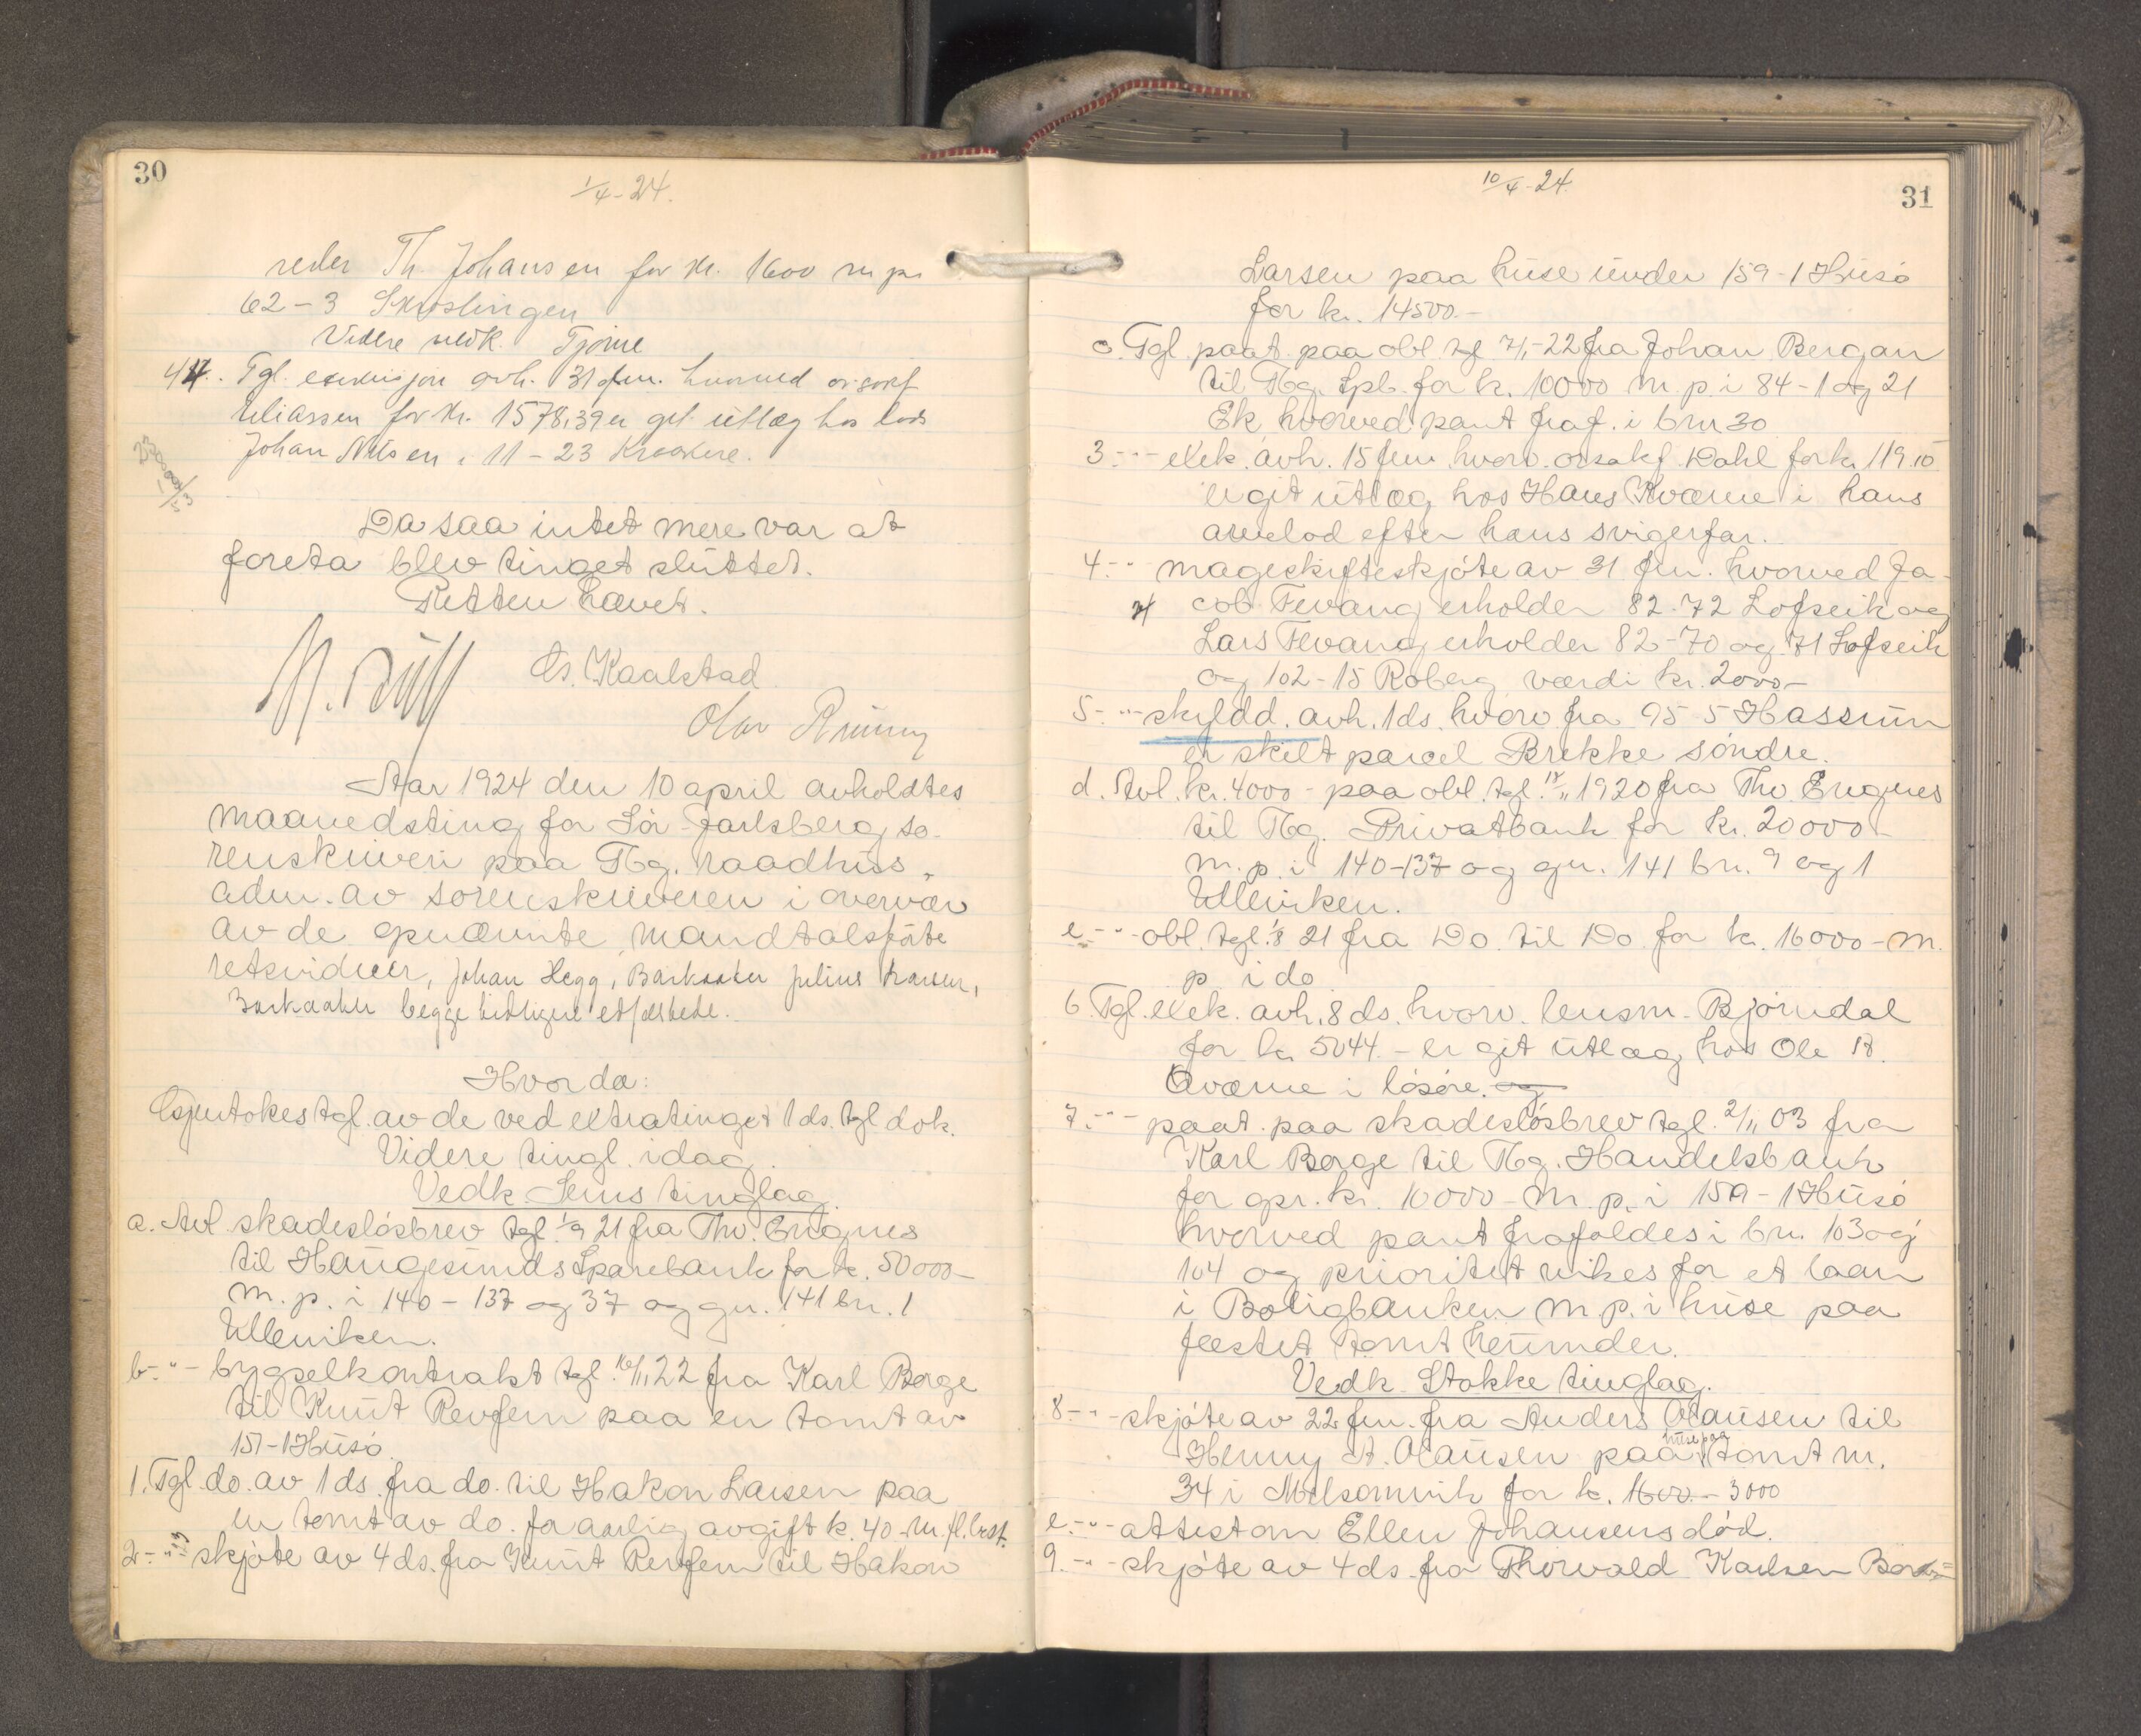 30
1/4-24.
reder Th. Johansen for kr. 1600 m.p.i
62-3
Videre vedk. Tjøme
44. Tgl. avh. 31 fm. hvorved orsakf.
Uliassen for kr. 1578,39 er git utlæg hos lods
Johan Nilsen i 11-23 Kraakere.
Da saa intet mere var at
foreta blev tinget sluttet.
Retten hævet.
Cs. Kaalstad
Olav
Aar 1924 den 10 april avholdtes
maanedsting for Sör-Jarlsberg so-
renskriveri paa Tbg. raadhus,
adm. av sorenskriveren i overvær
av de opnævnte mandtalsförte
retsvidner, Johan Hegg, Barkaaker Julius Larsen,
Barkaaker begge tidligere edfæstede.
Hvorda:
Gjentokes tgl. av de ved extratinget 1 ds. tgl dok.
Videre tingl. idag.
Vedk. Sems tinglag.
a. Avl. skadeslösbrev tgl. 1/9 21 fra Thv. Engnes
til Haugesunds Sparebank for k. 50000-
m.p. i 140-137 og 37 og gn. 141 bn. 1
Ulleviken.
b-"- bygselkontrakt tgl. 16/11 22 fra Karl Borge
til Knut Revfem paa en tomt av
151-1 Husö
1. Tgl. do. av 1 ds. fra do. til Hakon Larsen paa
en tomt av do. for aarlig avgift k. 40- m. fl. best.
2-"- skjöte av 4 ds. fra Knut Revfem til Hakon
10/4-24.
31
Larsen paa huse under 159-1 Husö
for kr. 14500.-
c. Tgl. paat. paa obl. tgl 7/1-22 fra Johan Bergan
til Tbg. Spb. for k. 10000 m.p. i 84-1 og 21
Ek hvorved pant fraf. i brn 30
3.-"- exek. avh. 15 fm hvorv. orsakf. Dahl for k. 119.10
er git utlæg hos Hans Kværne i hans
arvelod efter hans svigerfar.
4.-"- mageskifteskjöte av 31 fm. hvorved Ja-
cob Tevang erholder 82-72 Lofseik og
Lars Tevang erholder 82-70 og 71 Lofseik
og 102-15 Roberg værdi kr. 2000-
5-"- skyldd. avh. 1 ds. hvorv fra 95-5 Hassum
er skilt parcel Brekke söndre.
d. Avl. kr. 4000- paa obl. tgl. 18/11 1920 fra Thv. Engnes
til Tbg. Privatbank for kr. 20000-
m.p. i 140-137 og gn. 141 bn. 9 og 1
Ulleviken.
e-"- obl. tgl. 1/8 21 fra Do. til Do. for k. 16000- m.
p. i do.
6. Tgl. exek. avh. 8 ds. hvorv. lensm. Björndal
for kr. 5044.- er git utlæg hos Ole A.
Qværne i lösöre. og
7.-"- paat. paa skadeslösbrev tgl. 2/11 03 fra
Karl Borge til Tbg. Handelsbank
for opr. kr. 10000- m.p. i 159-1 Husö
hvorved pant frafaldes i brn. 103 og
104 og prioritet vikes for et laan
i Boligbanken m.p. i huse paa
feestet tomt herunder.
Vedk. Stokke tinglag.
8-"- skjöte av 22 fm. fra Anders Olausen til
Henny A. Olausen paa huse paa tomt nr.
34 i Melsomvik for k. 1600.- 3000
e-"- attest om Ellen Johansens död.
9.-"- skjöte av 4 ds. fra Thorvald Karlsen